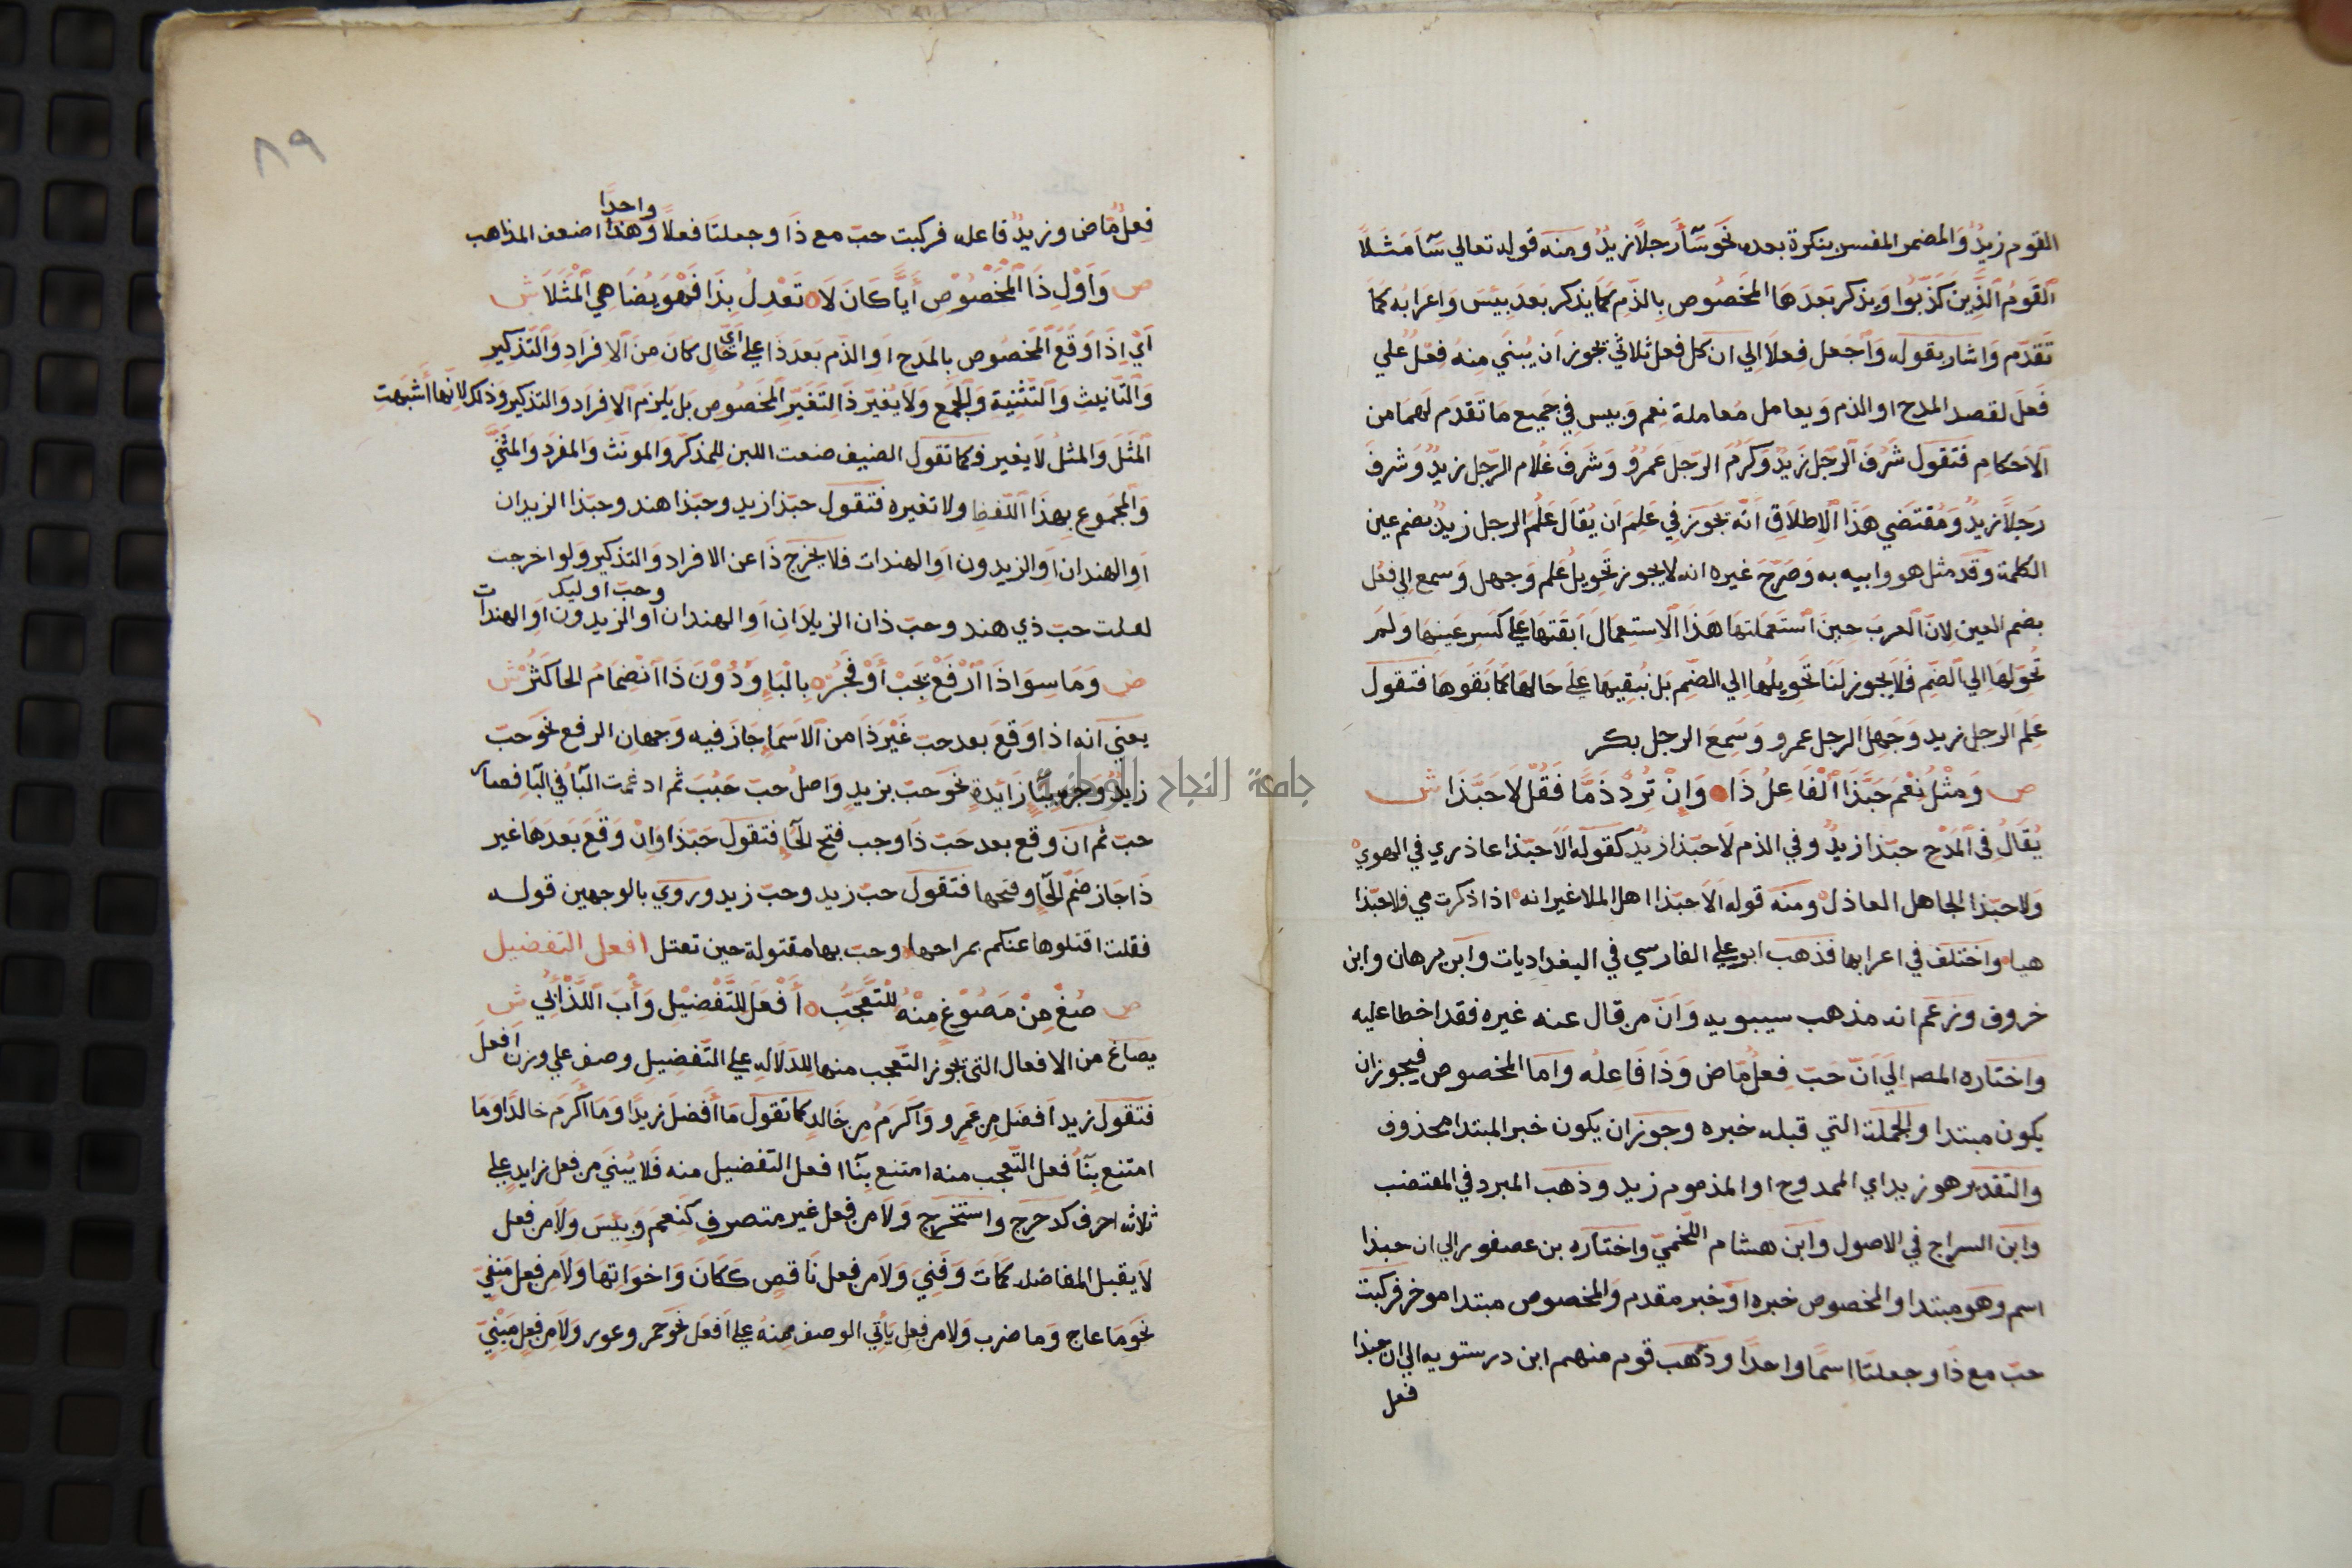 القوم زيدٌ والمضمر المفسر بنكرة بعده نحو سَآءَ رجلًا زيدٌ ومنه قوله تعالي سَآءَ مَثَلًا
ٱلقَومُ ٱلَّذِينَ كَذَّبُوا وَيذكر بَعدَهَا المَخصُوص بِالذّمِ كَمَا يذكر بَعدَ بِئسَ وَاِعرَابُه كمَا
تَقدّم وَاشار بقوله وَٱجعل فعلا الي ان كل فعل ثلاثي يجوز ان يُبنَي مِنهُ فِعْلٌ علي
فَعُلَ لقصد المدح او الذم وَيعامل مُعاملة نِعم وَبيسِ في جميع مَا تقدَم لهمَا من
الاَحكامِ فَتقول شَرُفَ الرّجل زيدٌ وَكرُمَ الرّجل عمرٌو وَشَرفَ غُلام الرّجل زيدٌ وَشرفَ
رَجلًا زيدٌ وَمُقتَضي هَذَا الاِطلَاقِ اَنّه يَجوَز في عَلِمَ ان يُقَال عَلُمَ الرجل زيدٌ بضم عين
الكلمة وقد مثل هو وابنه به وَصَرّحَ غيره انه لا يجوز تحَويل عَلم وَجهل وَسمع الي فعُل
بضم العين لانّ ٱلعرب حِينَ ٱستَعمَلتهَا هَذَا الاستِعمَال اَبقَتهَا عَلي كَسرِ عَينِهَا وَلمَ
تُحَوّلهَا الي الضّمِ فَلَا يَجوز لَنَا تَحَوِيلُها الي الضّمِ بَل نُبقِيهَا عَلَي حَالهَا كَمَا بَقوهَا فتقول
عَلِمَ الرجل زيد وَجَهِلَ الرجل عمرو وَسَمِعَ الرجل بكر
ص وَمِثْلُ نِعْمَ حَبَّذَا ٱلْفَاعِلُ ذَا وَإِنْ تُرِدْ ذَمًّا فَقُلْ لَا حَبَّذَا ش
يُقَالُ فِي ٱلمَدْحِ حبّذا زيدٌ وفي الذم لَا حبّذا زيدٌ كقوله الاَ حبّذا عاذري في الهوي
وَلا حبّذا الجاهل العاذل ومنه قوله اَلاَ حبّذا اهل الملا غير انه اذا ذكرت مي فلا حبّذا
هيا واختلف في اعرابها فذهب ابو علي الفارسي في البغداديات وابن برهان وابن
خروف وزعم انه مذهب سيبويه وَاَنّ من قال عنه غيره فقد اخطا عليه
واختاره المصـ الي اَنّ حبّ فِعلٌ مّاض وَذَا فَاعِلُه وَاما المخصوص فيجوز ان
يكون مبتدا والجملة التي قبله خبره وجوز ان يكون خبر المبتدا محذوف
والتقدير هو زيد اي الممدوح او المذموم زيد وذهب المبرد في المقتضب
وابن السراج في الاصول وابن هشام اللخميّ واختاره بن عصفور الي ان حبذا
اسم وهو مبتدا والمخصوص خبره او خبر مقدم والمخصوص مبتدا موخر فركبت
حبّ مع ذَا وجعلتا اسمًا واحدًا وذهب قوم منهم ابن درستويه الي ان حبذا
فعل
٨٩
فِعلٌ مّاض وزيدٌ فاعله فركبت حبّ مع ذَا وجعلتا فعلاً واحدًا وَهَذا اضعف المذاهب
ص وَأَوْلِ ذَا ٱلْمَخْصُوصَ أَيًّا كَانَ لَا تَعْدِلْ بِذَا فَهْوَ يُضَاهِي ٱلْمَثَلَا ش
اَيْ اِذَا وَقَعَ ٱلمَخصُوص بالمَدح اَو الذّم بَعدَ ذَا علي اَيّ حَالٍ كان مِنَ ٱلاِفرَادِ وَٱلتّذكِيرِ
وَالتّانيث وَالتّثنِية وَالجَمع وَلَا يُغيّر ذَا لِتَغيّرِ المَخصُوص بَل يَلزم الاِفرَادَ والتذكير وَذلك لاِنّها أَشبَهَت
المَثَلَ وَالمثلُ لا يغير فكما تقول الصّيف ضيعت اللبن للِمذكر والمونث وَالمفرد وَالمثنّيَ
وَٱلمَجمُوع بِهذَا اللّفظِ ولا تغيره فتقول حبّذا زيد وحبّذا هند وحبّذا الزيدان
اَو الهندان اَو الزيدون اَو الهندات فلا يخرج ذَا عن الافراد والتذكير ولو اخرجت
لقلت حبّ ذي هند وحبّ ذان الزيدَان اَو الهندان وحبّ اوليك اَو الزيدون اَو الهندات
ص وَمَا سِوَا ذَا ٱرْفَعْ بِحَبْ أَوْ فَجُرْ بِالْبَا وَدُوْنَ ذَا ٱنْضِمَامُ الحَا كَثُرْ ش
يعني اَنه اذا وقع بعد حبّ غَيْر ذَا من ٱلاَسَمَاءِ جَازَ فيه وَجهان الرفع نحَو حَبّ
زيدٌ وَجره بِبَآ زَايدةٍ نحَو حبّ بزيدٍ وَاصلُ حبّ حَبُبَ ثم ادغمت البَآ في البَا فصار
حبّ ثم ان وقع بعد حَبّ ذَا وجب فتح الحَآ فتقول حَبّذَا وَانْ وَقعَ بَعدَهَا غير
ذَا جَاز ضَمّ الحَآ وفتحها فتقول حبّ زيد وحبّ زيد وروي بالوجهين قوله
فقلت اقتلوها عنكم بمزاجها وحبّ بها مقتولة حين تقتل افعل التفضيل
ص صُغْ مِنْ مَصُوْغٍ مِنْهُ لِلتَّعَجُّبِ أَفْعَلَ لِلتَّفْضِيْلِ وَأْبَ ٱللَّذْ أُبِي ش
يصَاغ من الافعال التي يجوز التعجب منها للدلاله علي التّفضِيلِ وصف علي وزن افعلَ
فَتَقول زيد اَفضَل مِن عَمرٍو وَاَكرَمُ مِن خَالدٍ كما تقول مَا أَفضلَ زيدًا وَمَا اَكرَم خالدًا وَمَا
امتنع بِنَآ فعل التّعجب منه امتنع بِنَآ افعل التّفضيل منه فَلا يُبنَي من فعل زايدٍ علي
ثلاثه احرف كدحرج واستخرج وَلا من فعل غير متصرف كَنعمَ وَبِئسَ وَلا من فعل
لَا يقبل المفاضله كمَاتَ وَفَنِيَ وَلا من فعل نَاقصٍ ككَانَ وَاخوَاتها ولا من فعل مَنفيّ
نحَو مَا عاج وَما ضرب وَلا من فعل يَاتي الوصف مِنهُ علي اَفعلَ نحَو حمر وعور ولا من فعل مَبنيّ
جامعة النجاح الوطنية